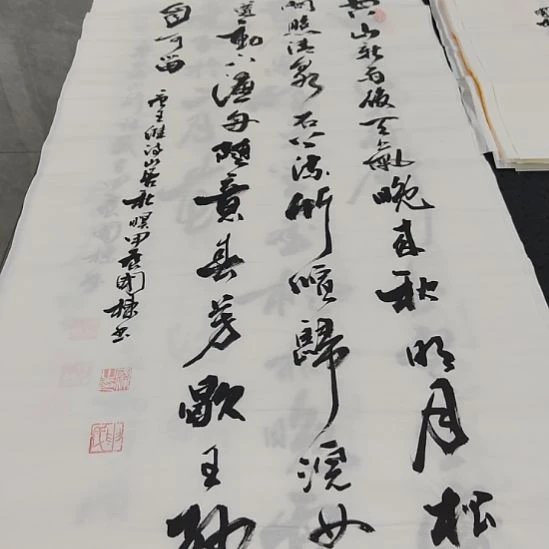 空山新雨後天氣晚來秋明月松
間照清泉石上流竹喧歸浣女
蓮動下漁舟隨意春芳歇王孫
自可留
唐王維詩山居秋暝甲辰國棟書